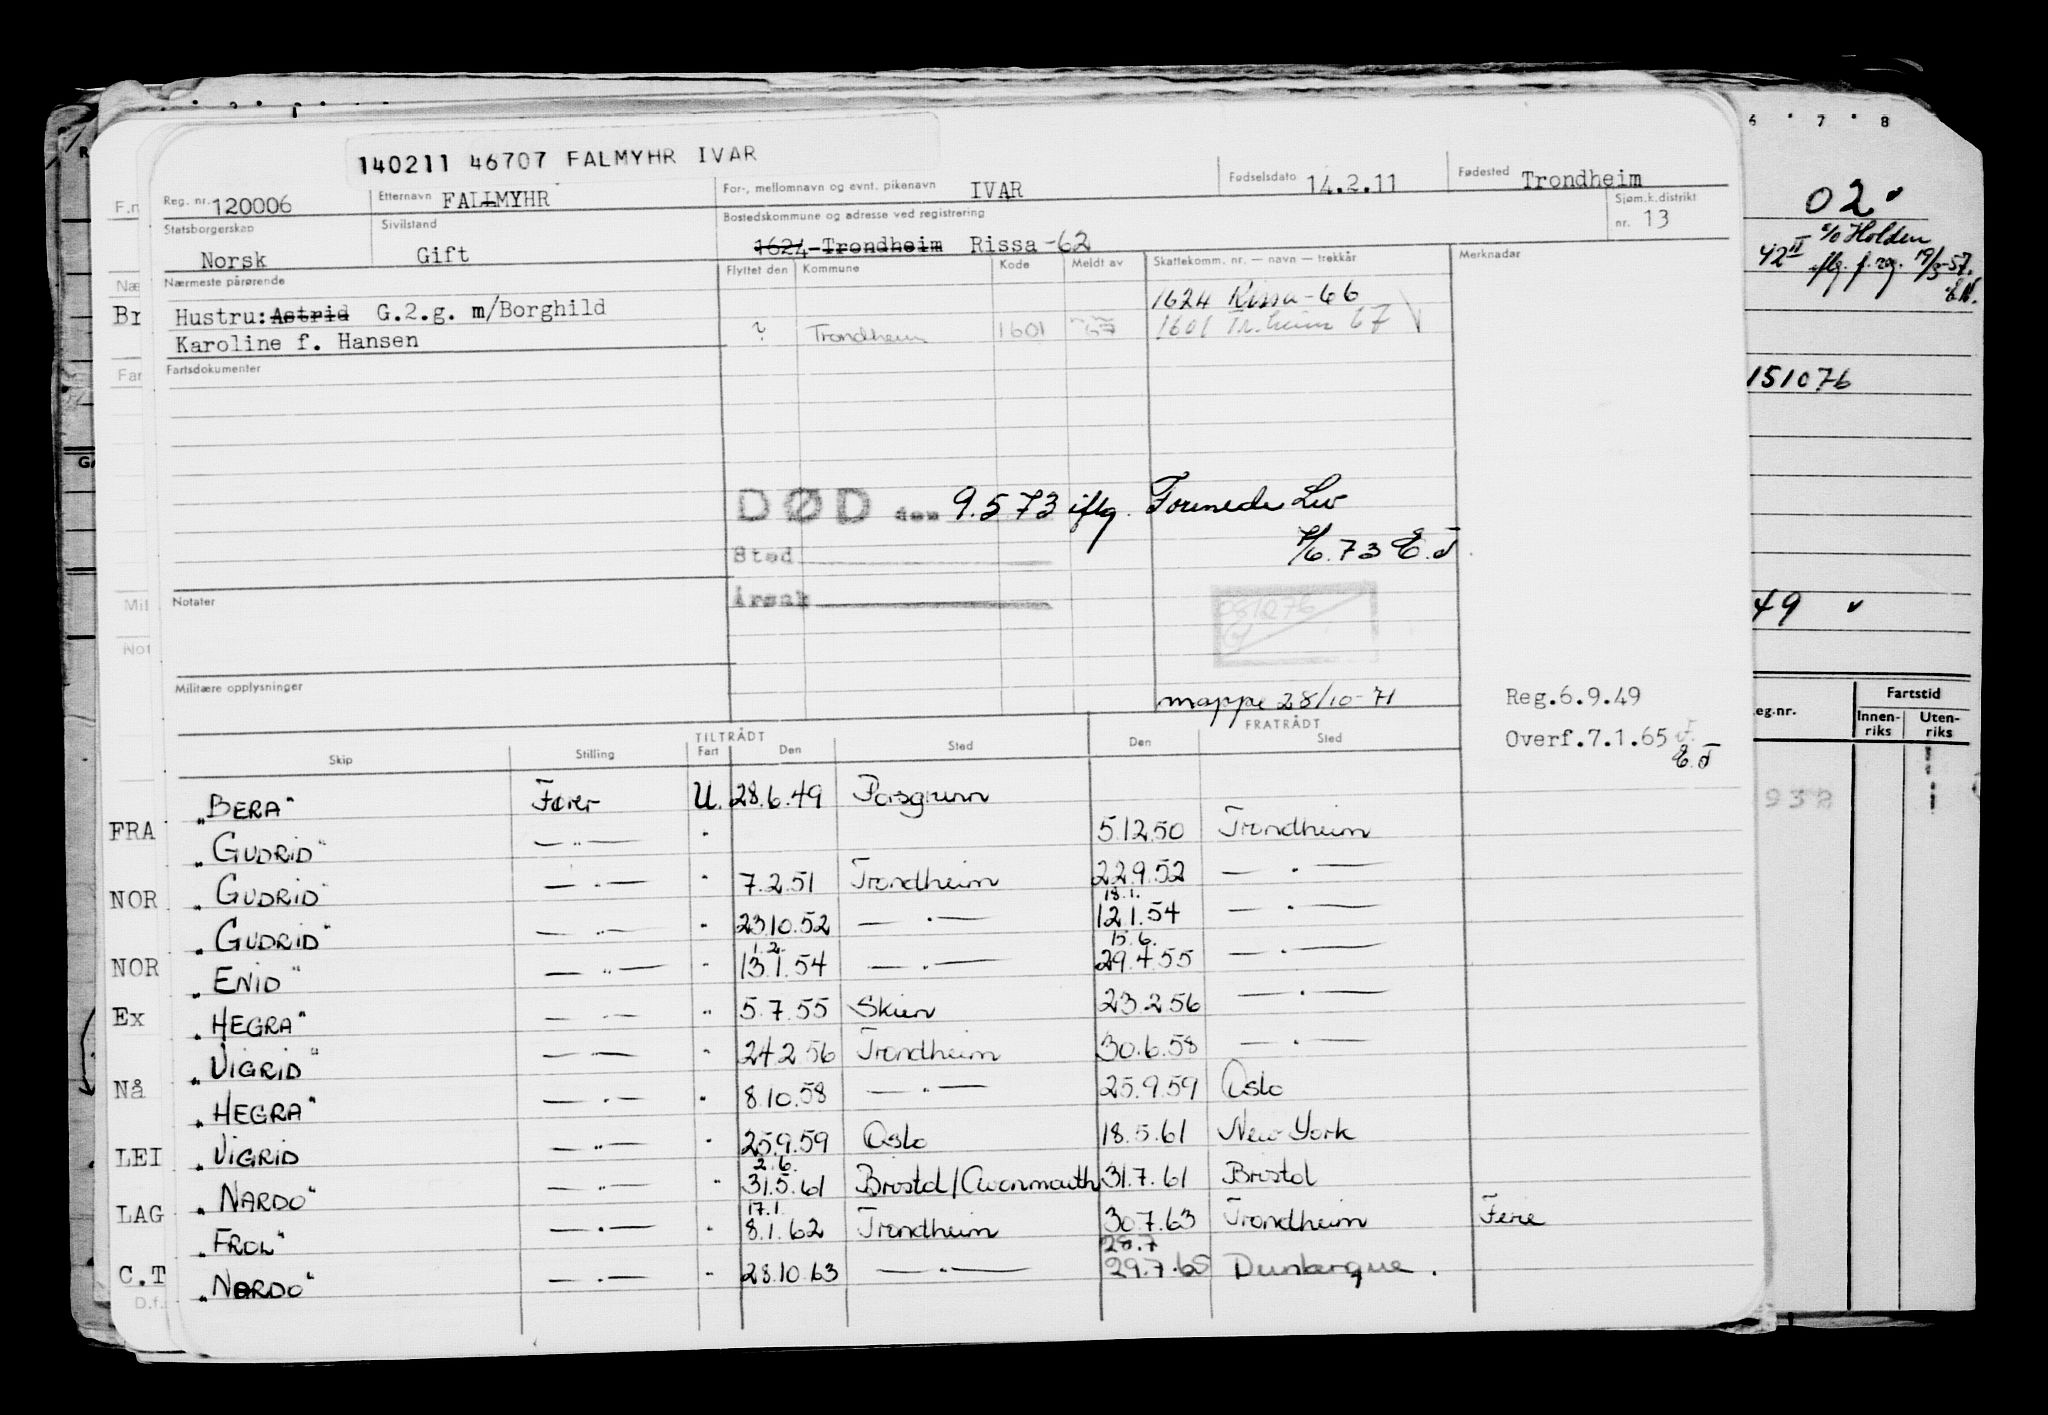 6 7 8
140211 46707 FALMYHR IVAR
Reg. nr. 120006 Etternavn FALLMYHR For-, mellomnavn og evnt. pikenavn IVAR Fødselsdato 14.2.11 Fødested Trondheim
Statsborgerskap Norsk Sivilstand Gift Bostedskommune og adresse ved registrering 1624-Trondheim Rissa-62 Sjøm.k.distrikt nr. 13
Nærmeste pårørende Flyttet den Kommune Kode Meldt av Skattekomm. nr. — navn — trekkår Merknader
Hustru: Astrid G.2.g. m/Borghild 1624 Rissa-66
Karoline f. Hansen ? Trondheim 1601 67 1601 Tr.heim 67
Fartsdokumenter
DØD den 9.5 73 iflg.
73 E.T.
Sted
Årsak
Notater
081276
Militære opplysninger
mappe 28/10-71
Reg.6.9.49
Overf.7.1.65
E.T
TILTRÅDT FRATRÅDT
Skip Stilling Fart Den Sted Den Sted
"BERA" Fører U. 28.6.49 Porsgrunn
"GUDRID" —"— " 5.12.50 Trondheim
"GUDRID" —"— " 7.2.51 Trondheim 22.9.52 —"—
18.1.
"GUDRID" —"— " 23.10.52 —"— 12.1.54 —"—
1.2. 15.6.
"ENID" —"— " 13.1.54 —"— 29.4.55 —"—
"HEGRA" —"— " 5.7.55 Skien 23.2.56 —"—
"VIGRID" —"— " 24.2.56 Trondheim 30.6.58 —"—
"HEGRA" —"— " 8.10.58 —"— 25.9.59 Oslo
"VIGRID —"— " 25.9.59 Oslo 18.5.61 New York
2.6.
"NARDO" —"— " 31.5.61 Bristol/Avonmouth 31.7.61 Bristol
17.1.
"FROL" —"— " 8.1.62 Trondheim 30.7.63 Trondheim Ferie
28.7
"NARDO" —"— " 28.10.63 —"— 29.7.65 Dunkerque.
F.n
Næ
Br
Far
Mil
Not
FRA
NOR
NOR
Ex
Nå
LEI
LAG
C.T
D.f.
02
c/o Holden
42 II iflg. f. reg. 19/3-57.
151076
49
eg.nr. Fartstid
Innen-riks Uten-riks
938